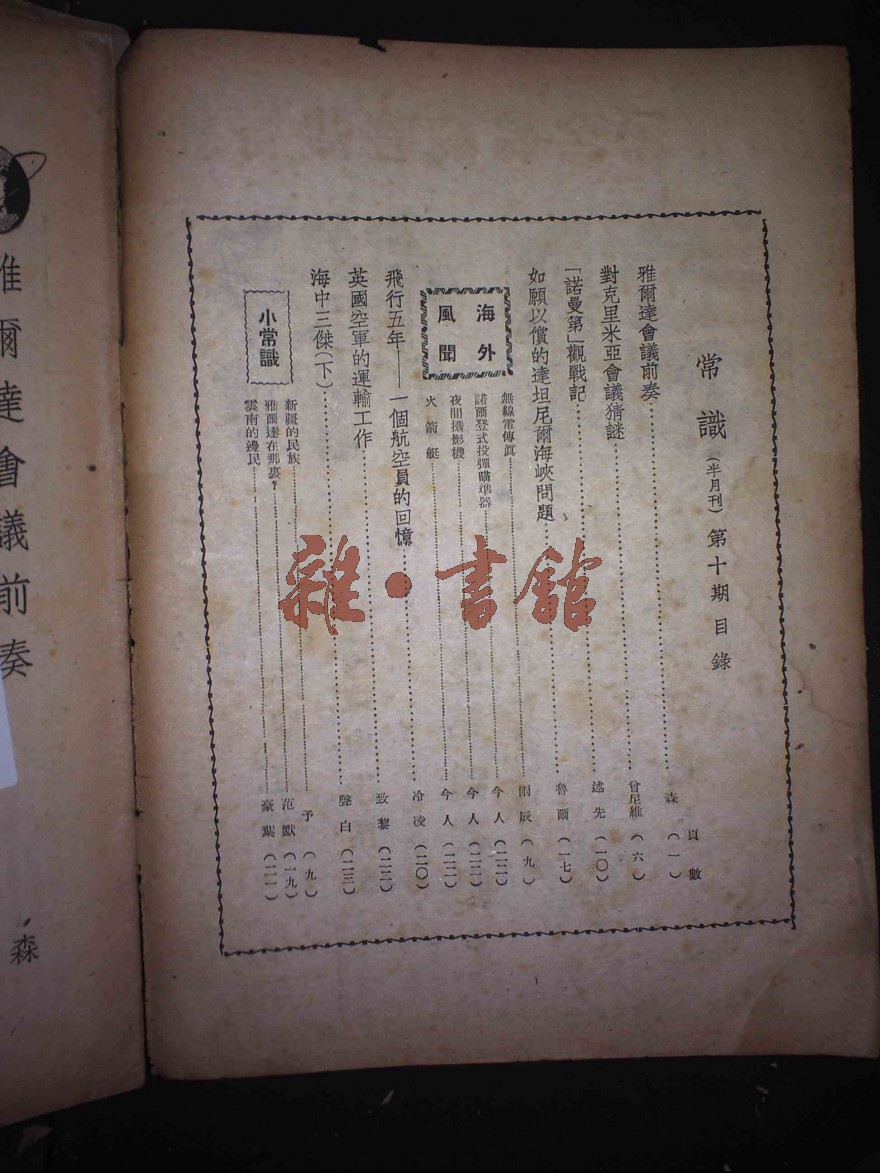 常識（半月刊）第十期目錄
頁數
雅爾達會議前奏……森（一）
對克里米亞會議猜謎……曾尼維（六）
「諾曼第」觀戰記……述先（一〇）
如願以償的達坦尼爾海峽問題……魯爾（一七）
海外風聞
無線電傳眞……雨辰（九）
諾爾登式投彈瞄準器……今人（二二）
夜間攝影機……今人（二二）
火箭艇……今人（二二）
飛行五年——一個航空員的回憶……冷凌（二〇）
英國空軍的運輸工作……致黎（二二）
海中三傑（下）……聲白（二三）
小常識
新疆的民族……予（九）
雅爾達在那裏？……范默（一九）
雲南的邊民……豪葉（二一）
雜·書館
雅爾達會議前奏
森